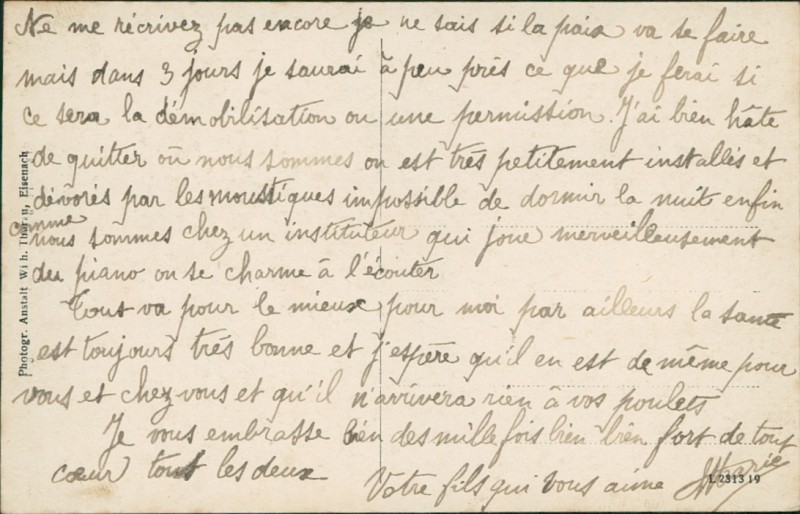 Ne me récrivez pas encore je ne sais si la paix va se faire
mais dans 3 jours je saurai à peu près ce que je ferai si
ce sera la démobilisation ou une permission. J'ai bien hâte
de quitter où nous sommes on est très petitement installés et
dévorés par les moustiques impossible de dormir la nuit enfin
comme
nous sommes chez un instituteur qui joue merveilleusement
du piano on se charme à l'écouter
Tout va pour le mieux pour moi par ailleurs la santé
est toujours très bonne et j'espère qu'il en est de même pour
vous et chez vous et qu'il n'arrivera rien à vos poulets
Je vous embrasse bien des mille fois bien bien fort de tout
cœur tous les deux
Votre fils qui vous aime
Photogr. Anstalt Wilh. Eisenach
L 2313 19